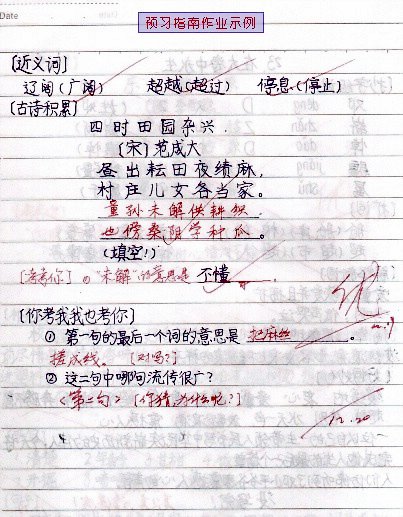 Date
预习指南作业示例
Date
[近义词]
辽阔(广阔) 超越(超过) 停息(停止)
[古诗积累]
四时田园杂兴.
[宋]范成大
昼出耘田夜绩麻,
村庄儿女各当家。
童孙未解供耕织,
也傍桑阴学种瓜。
(填空!)
[考考你]①"未解"的意思是 不懂
[你考我我也考你]
① 第一句的最后一个词的意思是 把麻丝
搓成线。 [对吗?]
② 这二句中哪句流传很广?
<第二句> [你猜,为什么呢?]
优
12.20